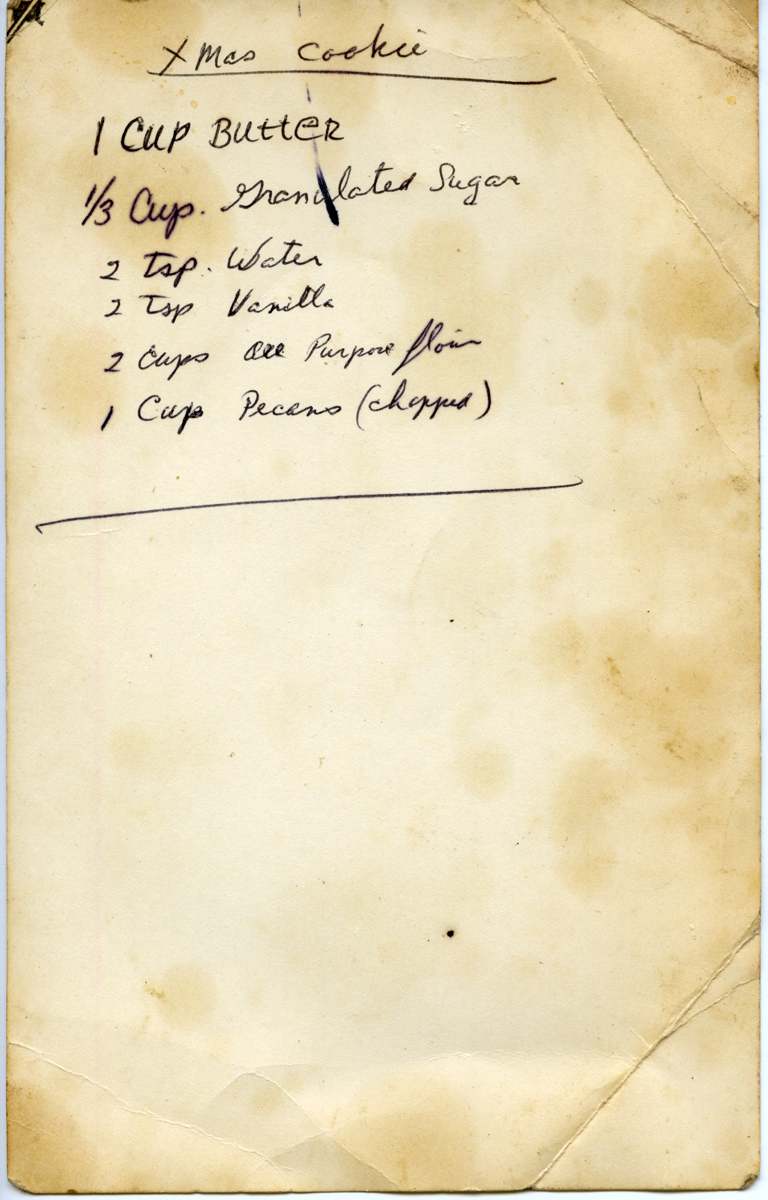 XMas Cookie
1 Cup Butter
1/3 Cup. Granulated Sugar
2 Tsp. Water
2 Tsp Vanilla
2 Cups All Purpose flour
1 Cup Pecans (chopped)